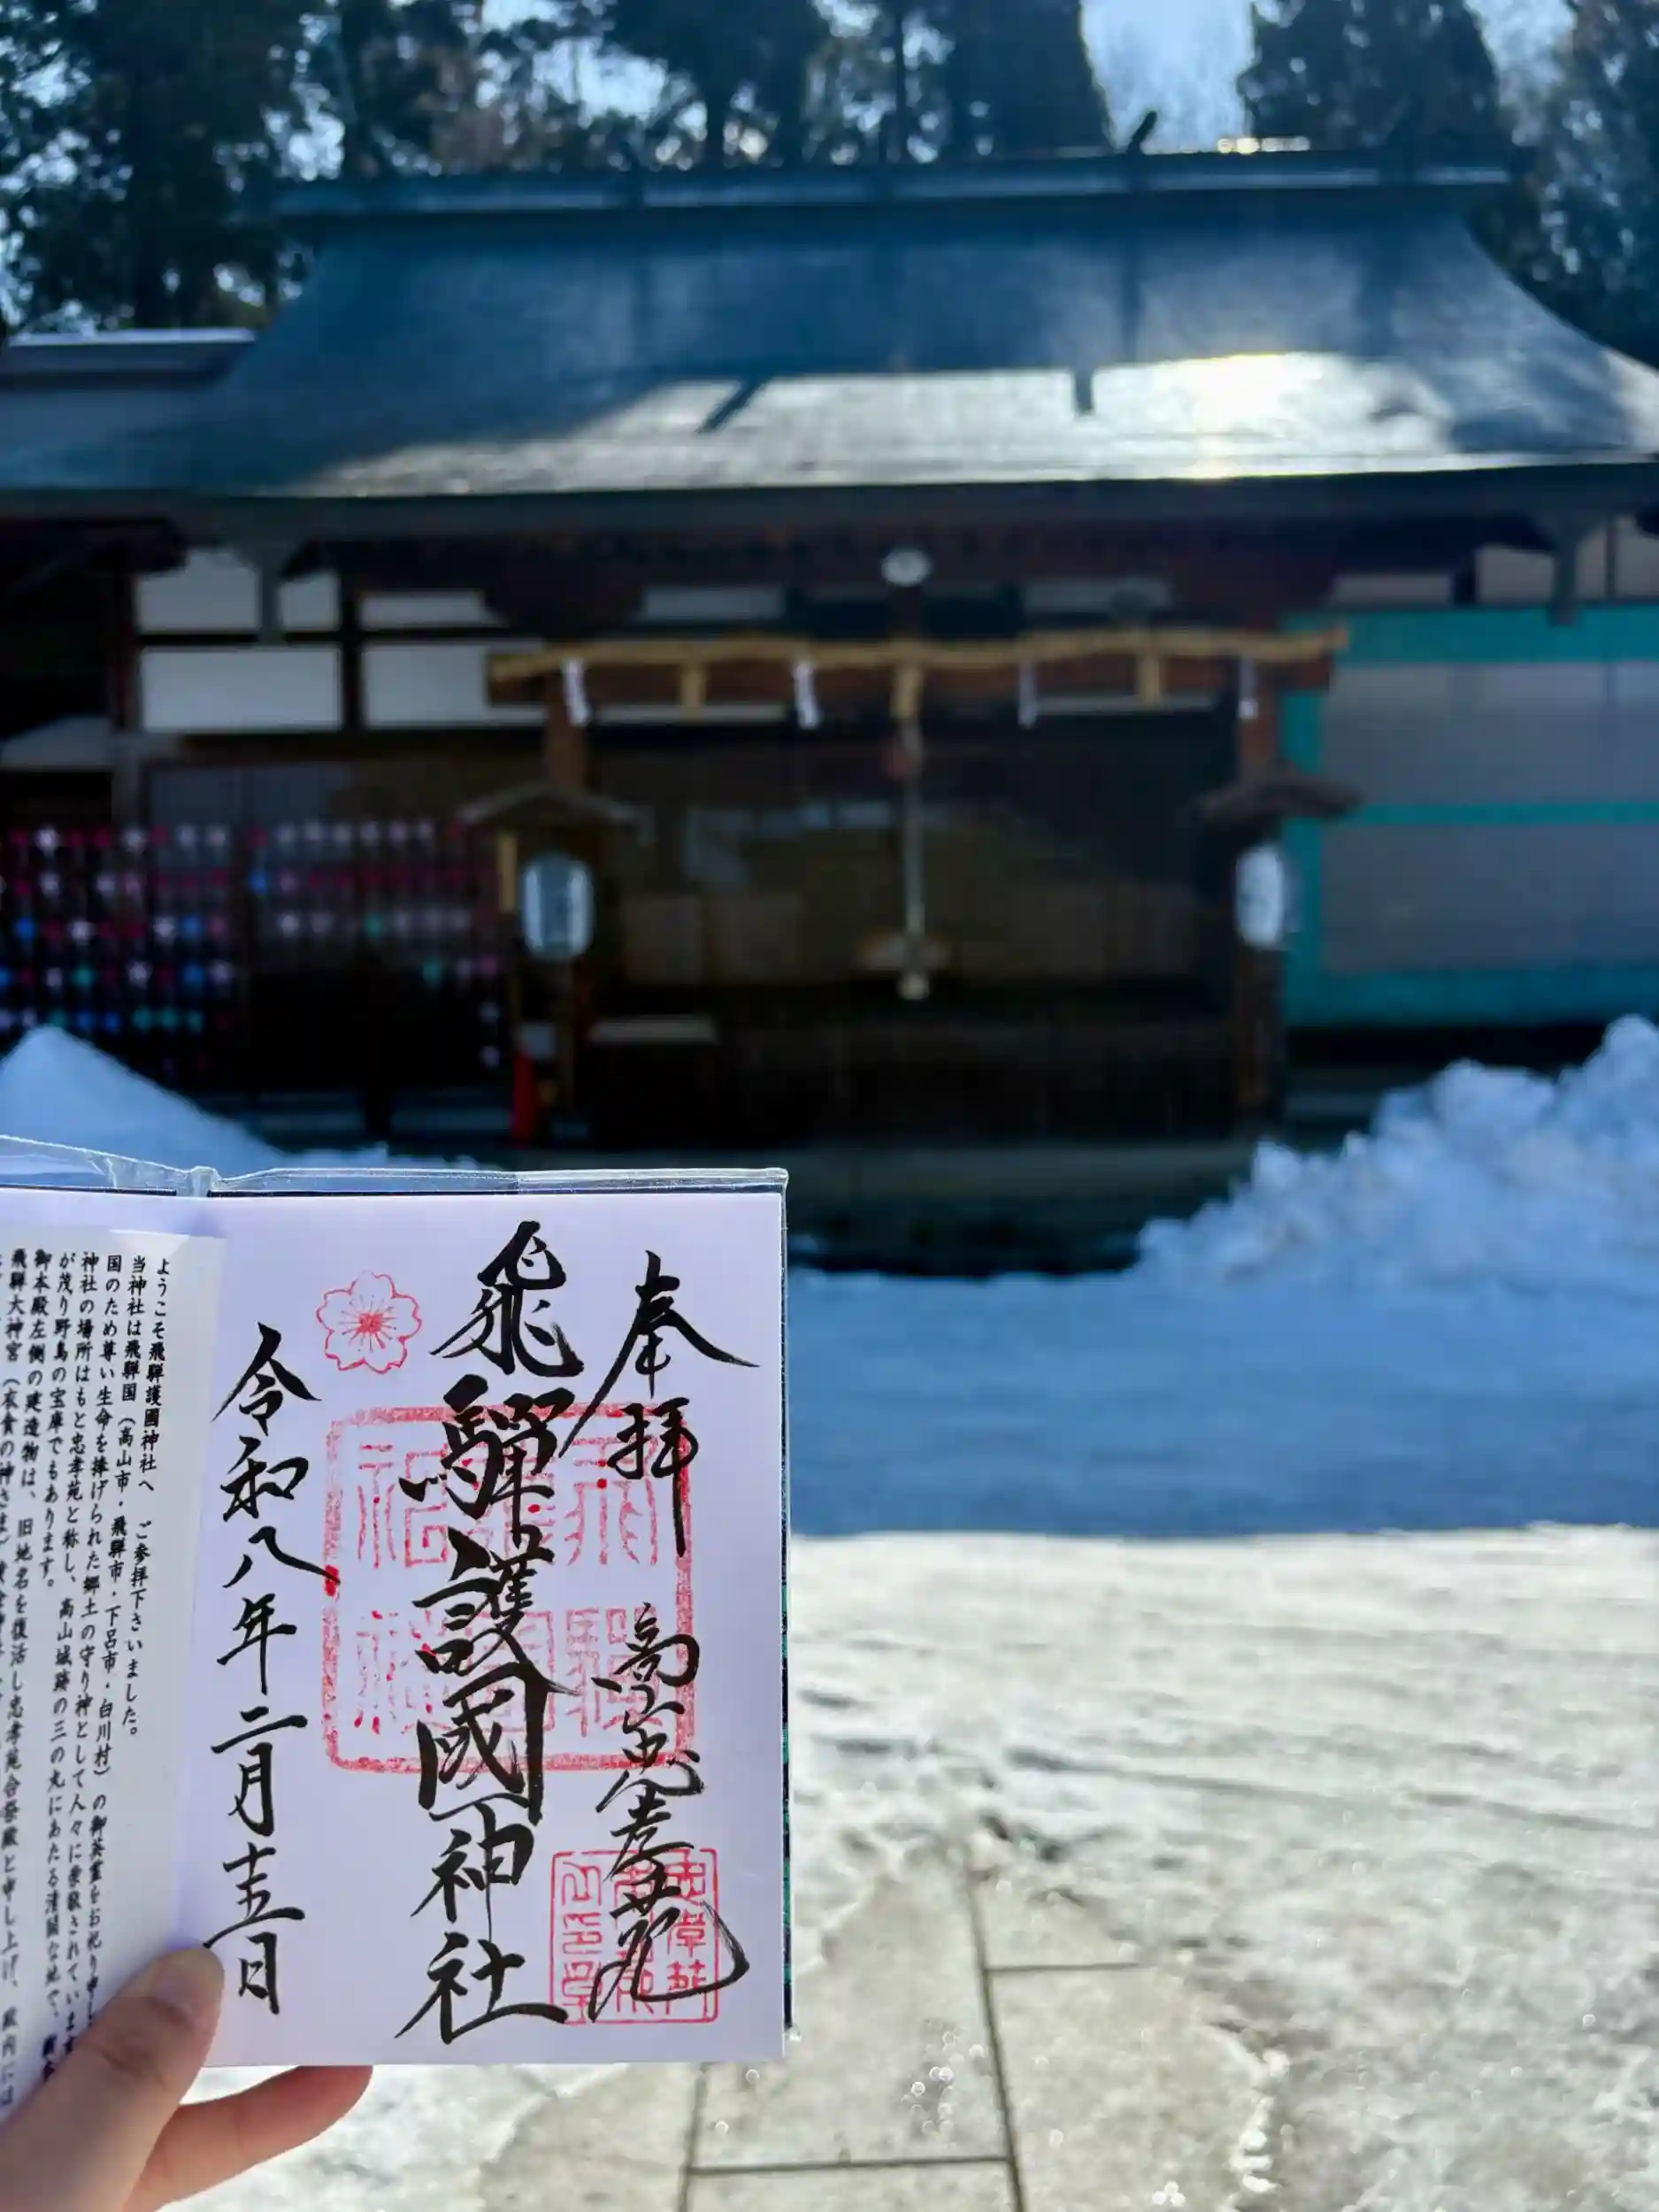 奉拝
高山忠孝苑
飛騨護國神社
令和八年二月十五日
ようこそ飛騨護國神社へ ご参拝下さいました。
当神社は飛騨国（高山市・飛騨市・下呂市・白川村）の御英霊をお祀り申し
国のため尊い生命を捧げられた郷土の守り神として人々に崇敬されています
神社の場所はもと忠孝苑と称し、高山城跡の三の丸にあたる清閑な地で、
が茂り野鳥の宝庫でもあります。
御本殿左側の建造物は、旧地名を復活し忠孝苑合祭殿と申し上げ、殿内には
飛騨大神宮（衣食の神さま）